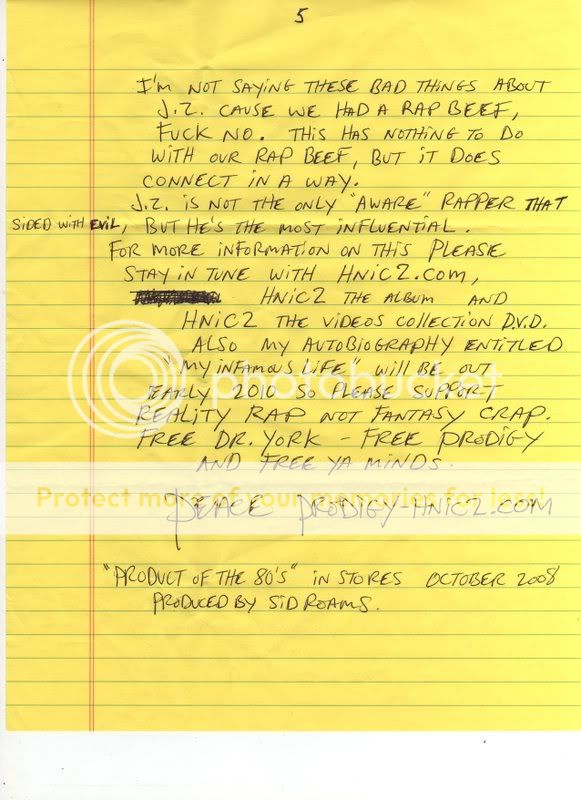 5
I'M NOT SAYING THESE BAD THINGS ABOUT
J.Z. CAUSE WE HAD A RAP BEEF,
FUCK NO. THIS HAS NOTHING TO DO
WITH OUR RAP BEEF, BUT IT DOES
CONNECT IN A WAY.
J.Z. IS NOT THE ONLY "AWARE" RAPPER THAT
SIDED WITH EVIL, BUT HE'S THE MOST INFLUENTIAL.
FOR MORE INFORMATION ON THIS PLEASE
STAY IN TUNE WITH HNIC2.COM,
HNIC2 THE ALBUM AND
HNIC2 THE VIDEOS COLLECTION D.V.D.
ALSO MY AUTOBIOGRAPHY ENTITLED
"MY INFAMOUS LIFE" WILL BE OUT
EARLY 2010 SO PLEASE SUPPORT
REALITY RAP NOT FANTASY CRAP.
FREE DR. YORK - FREE PRODIGY
AND FREE YA MINDS.
photobucket
Protect more of your memories for less!
PEACE PRODIGY-HNIC2.COM
"PRODUCT OF THE 80'S" IN STORES OCTOBER 2008
PRODUCED BY SID ROAMS.